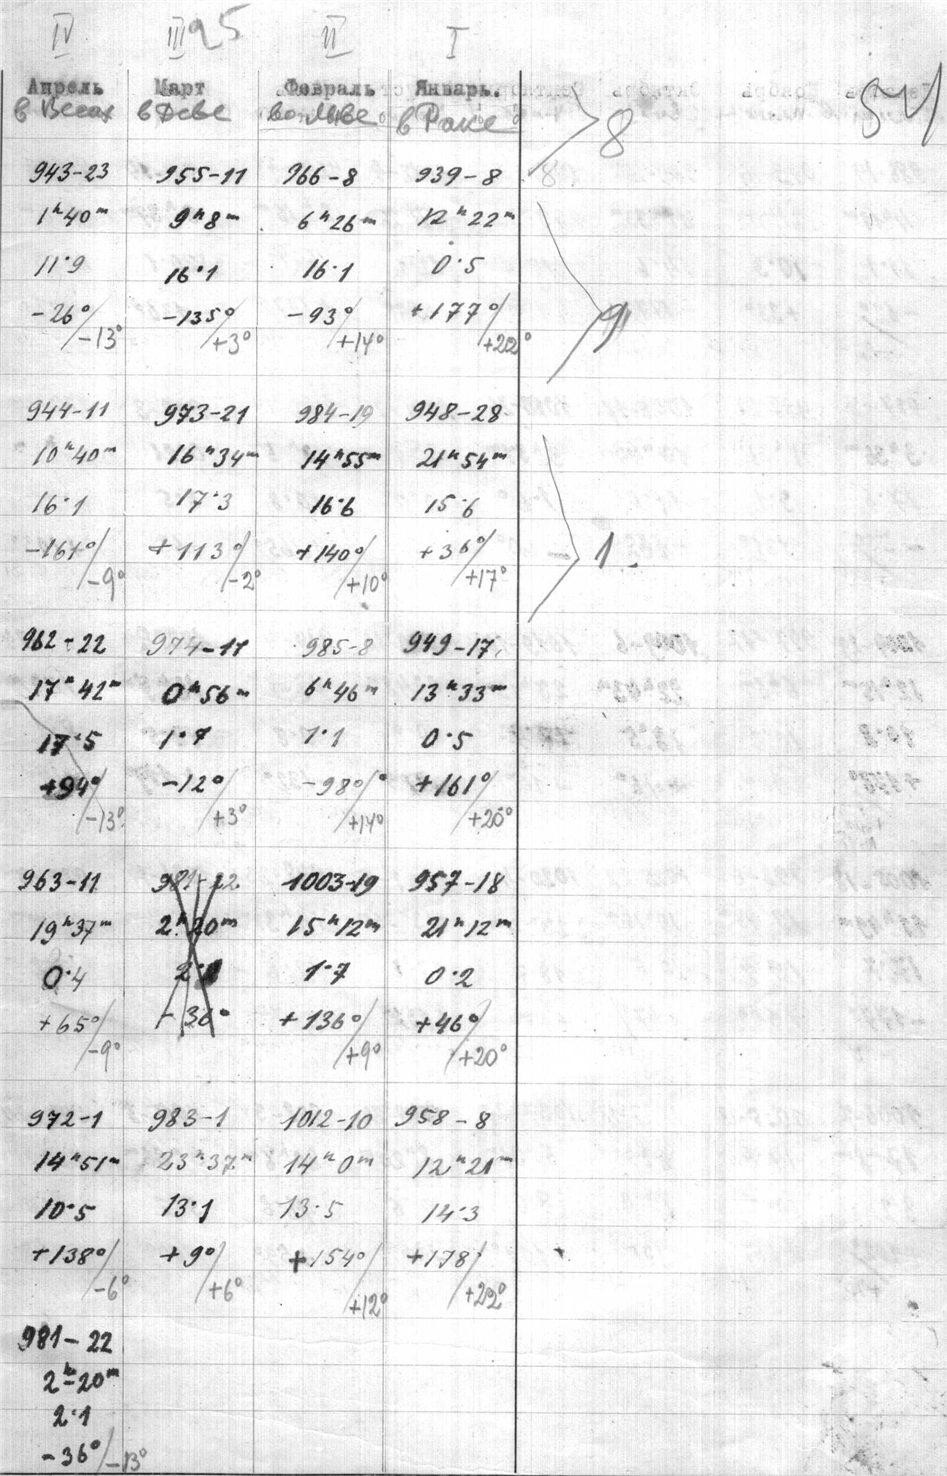 IV III 25 II I
Апрель Март Февраль Январь.
в Весах в Деве во Льве в Раке 8
943-23 955-11 966-8 939-8
1ʰ40ᵐ 9ʰ8ᵐ 6ʰ26ᵐ 12ʰ22ᵐ
11·9 16·1 16·1 0·5
-26°/-13° -135°/+3° -93°/+14° +177°/+22° 9
944-11 973-21 984-19 948-28
10ʰ40ᵐ 16ʰ34ᵐ 14ʰ55ᵐ 21ʰ54ᵐ
16·1 17·3 16·6 15·6
-167°/-9° +113°/-2° +140°/+10° +36°/+17° 1
962-22 974-11 985-8 949-17
17ʰ42ᵐ 0ʰ56ᵐ 6ʰ46ᵐ 13ʰ33ᵐ
17·5 1·7 1·1 0·5
+94°/-13° -12°/+3° -98°/+14° +161°/+20°
963-11 981-22 1003-19 957-18
19ʰ37ᵐ 2ʰ20ᵐ 15ʰ12ᵐ 21ʰ12ᵐ
0·4 2·1 1·7 0·2
+65°/-9° -36° +136°/+9° +46°/+20°
972-1 983-1 1012-10 958-8
14ʰ51ᵐ 23ʰ37ᵐ 14ʰ0ᵐ 12ʰ21ᵐ
10·5 13·1 13·5 14·3
+138°/-6° +9°/+6° +154°/+12° +178°/+22°
981-22
2ʰ20ᵐ
2·1
-36°/-13°